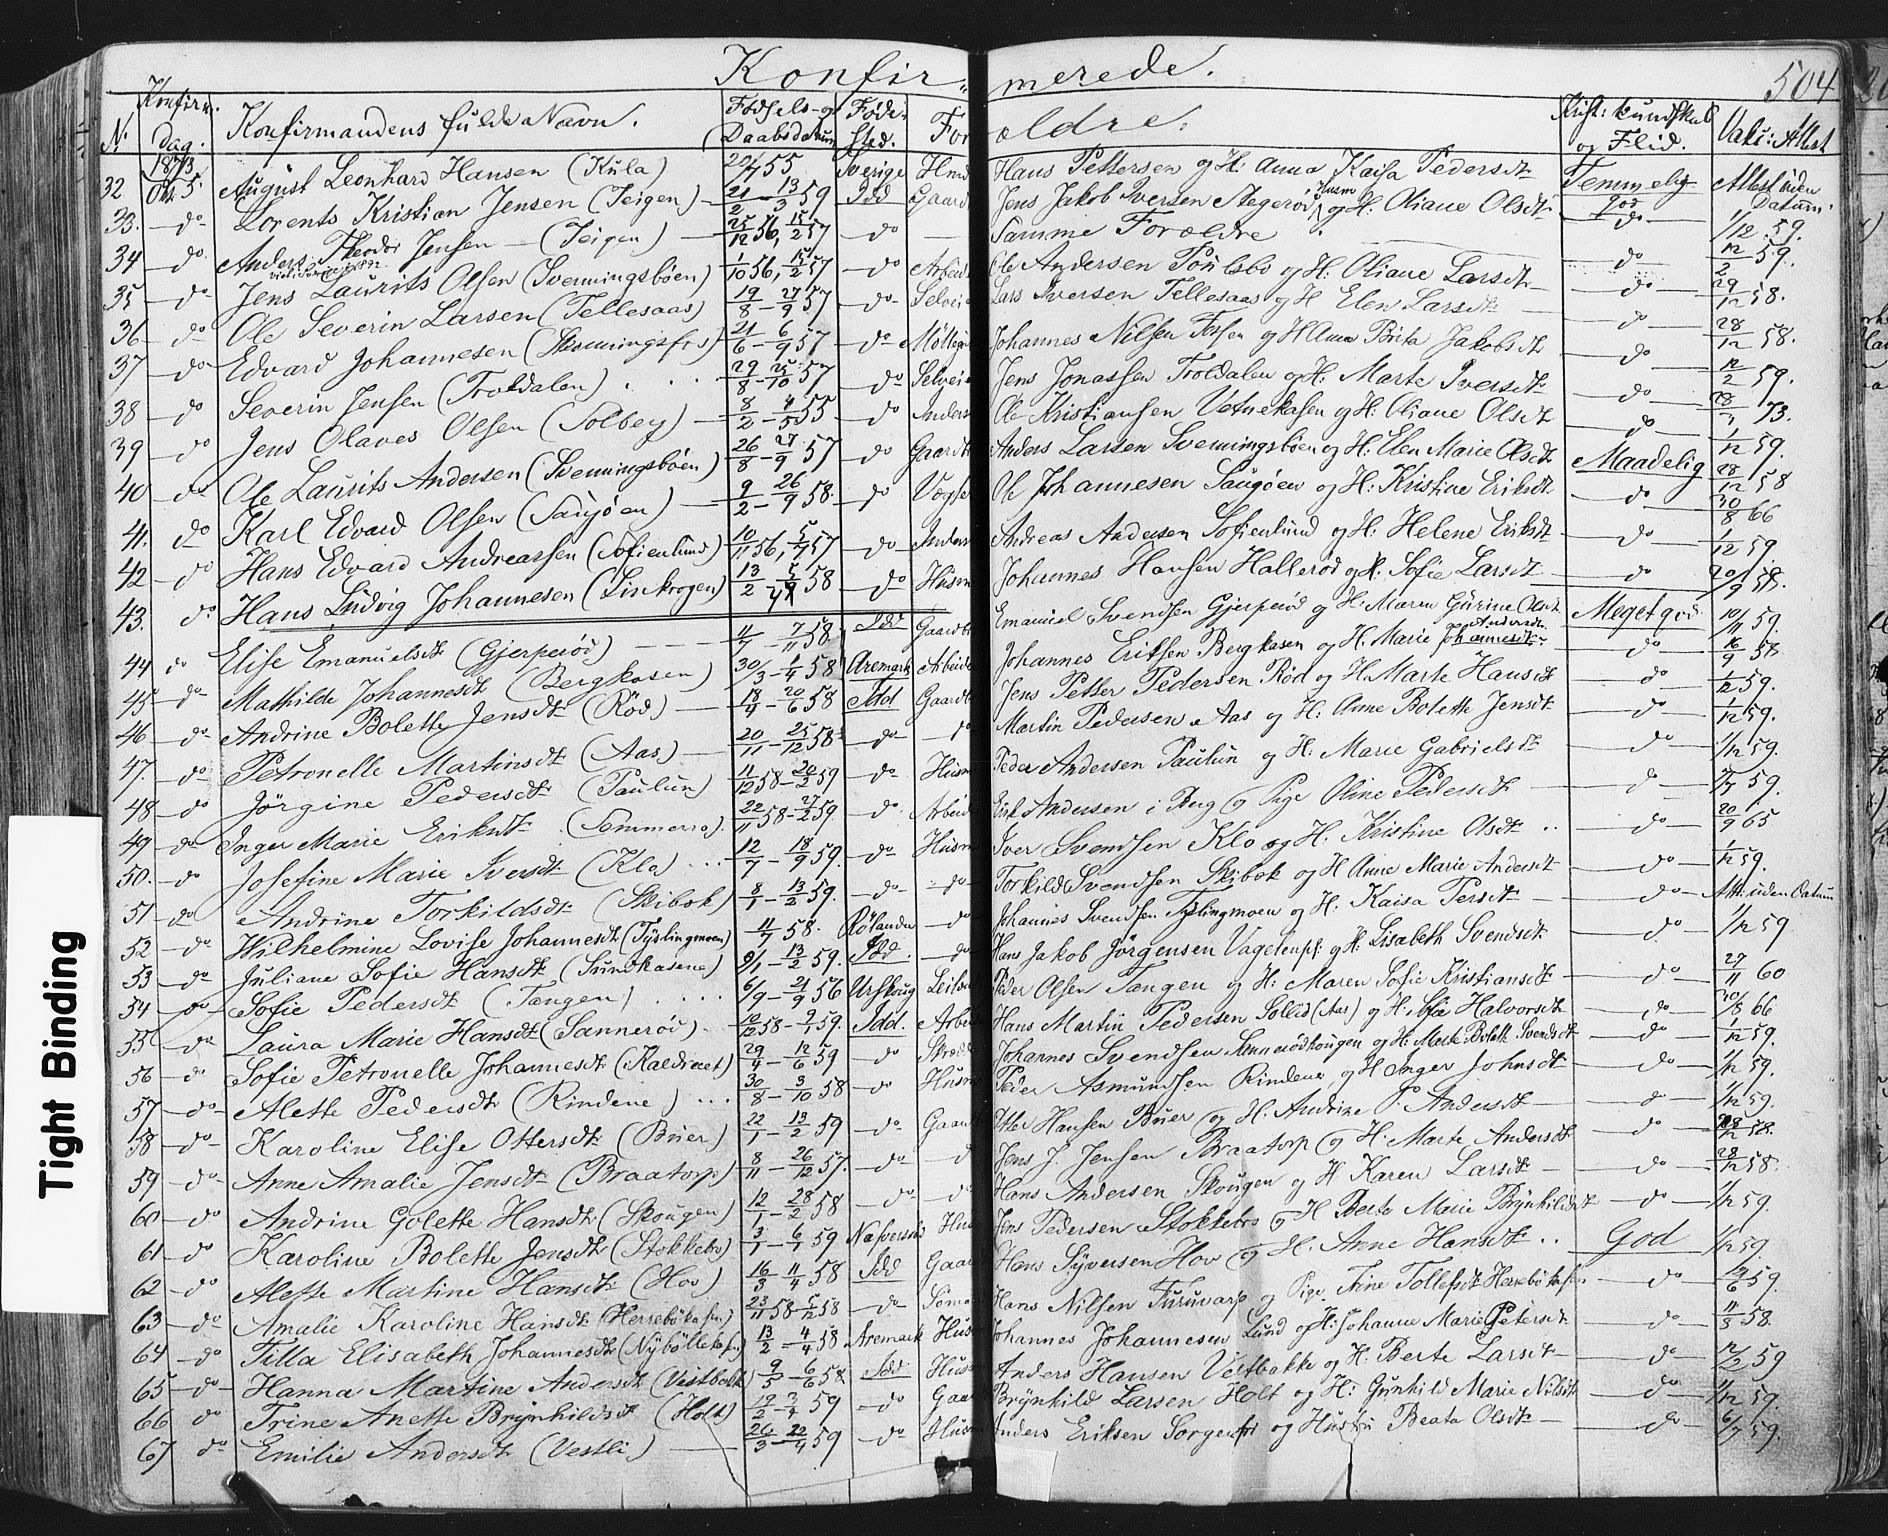 Konfir- merede. 504
N. Konfirm. dag. Konfirmandens fulde Navn. Fødsels- og Daabsdatum Føde-sted. For ældre. Krist: kundskab og Flid. Vaki: Attest
1873
32 Okt 5. August Leonhard Hansen (Kula) 20/7 55 Sverige Hans Pettersen og H: Anna Kaisa Pedersdt Temmelig god Attest uden Datum.
33. do Lorents Kristian Jensen (Teigen) 21/2 - 13/3 59 Idd Gaard Jens Jakob Iversen Stegerød og H: Oliane Olsdt do 1/12 59.
34 do Anders Theodor Jensen (Teigen) 25/12 56, 15/2 57 do Samme Forældre do 12/2 59.
35 do Jens Laurits Olsen (Svenningsbøen) 1/10 56, 15/2 57 do Arbeid Ole Andersen og H: Oliane Larsdt do 29/12 58.
36 do Ole Severin Larsen (Tellesaas) 19/8 - 27/9 57 do Selvei Lars Iversen Tellesaas og H Elen Larsdt do 28/12 58.
37 do Edvard Johannesen 21/6 - 6/9 57 do Johannes Nilsen og H Anna Brita Jakobsdt do 12/2 59.
38 do Severin Jensen (Troldalen) 29/8 - 25/10 57 do Selvei Jens Jonassen Troldalen og H: Marte Iversdt do 73.
39 do Jens Olaves Olsen (Solberg) 8/2 - 4/5 55 do Ole Kristiansen og H: Oliane Olsdt do 1/12 59.
40 do Ole Laurits Andersen (Svenningsbøen) 26/8 - 27/9 57 do Gaard Anders Larsen Svenningsbøen og H: Elen Marie Olsdt Maadelig 28/12 58
41. do Karl Edvard Olsen (Saugøen) 9/2 - 26/9 58. do Ole Johannesen Saugøen og H: Kristine Eriksdt do 30/8 66
42 do Hans Edvard Andreassen (Sofienlund) 10/11 56, 5/7 57 do Anders Andreas Andersen Sofienlund og H: Helene Eriksdt do 1/12 59
43. do Hans Ludvig Johannesen (Linkrogen) 13/2 - 58 do Husm Johannes Hansen Hallerød og H: Sofie Larsdt do 20/9 58.
44 do Elise Emanuelsdt (Gjerperød) 4/7 - 7/11 58. Idd Gaardb Emanuel Svendsen Gjerperød og H: Maren Gurine Olsdt Meget god. 10/11 59
45 do Mathilde Johannesdt (Bergkasen) 30/3 - 1/4 58 Aremark Arbeide Johannes Eriksen Bergkasen og H. Marie Andersdt do 16/9 58
46 do Andrine Bolette Jensdt (Rød) 18/4 - 20/6 58 Idd Gaardb Jens Petter Pedersen Rød og H. Marte Hansdt do 1/12 59.
47. do Petronelle Martinsdt (Aas) 20/11 - 25/12 58 do do Martin Pedersen Aas og H: Anne Boleth Jensdt do 1/12 59.
48 do Jørgine Pedersdt (Paulun) 11/12 58 - 20/2 59 do Husm Peder Andersen Paulun og H: Marie Gabrielsdt do 1/12 59.
49 do Inger Marie Eriksdt (Sommerro) 22/11 58 - 27/2 59 do Arbeid Erik Andersen i Berg og Pige Oline Pedersdt do 59.
50. do Josefine Marie Iversdt (Klo) 12/7 - 18/9 59. do Husm Iver Svendsen Klo og H: Kristine Olsdt do 20/9 65
51 do Andrine Torkildsdt (Skibok) 8/1 - 13/2 59. do do Torkild Svendsen Skibok og H Anne Marie Andersdt do 1/12 59.
52 do Wilhelmine Lovise Johannesdt (Tyslingmoen) 11/7 58. do Johannes Svendsen Tyslingmoen og H. Kaisa Persdt do Att: uden Datum
53 do Juliane Sofie Hansdt (Sundkasene) 9/1 - 13/2 59. Idd. do Hans Jakob Jørgensen og H: Lisabeth Svendsdt do 1/12 59
54 do Sofie Pedersdt (Tangen) 6/9 - 21/9 56 Urskoug Peder Olsen Tangen og H: Maren Sofie Kristiansdt do 27/11 60
55 do Laura Marie Hansdt (Sannerød) 10/12 58 - 2/1 59. Idd. Arbe Hans Martin Pedersen Sollid (Aas) og H: Sofie Halvorsdt do 30/8 66
56 do Sofie Petronelle Johannesdt 29/4 - 12/6 59 do Johannes Svendsen Sannerødhougen og H: Marte Boleth Svendsdt do 1/12 59.
57 do Alette Pedersdt (Rindene) 30/8 - 3/10 58 do Husm Peder Asmundsen Rindene og H Inger Johnsdt do 1/12 59.
58 do Karoline Elise Ottersdt (Buer) 22/1 - 13/2 59 do Gaard Otter Hansen Buer og H. Andrine P. Andersdt do 1/12 59.
59 do Anne Amalie Jensdt (Braatorp) 8/11 - 26/12 57. do Jens J Jensen Braatorp og H: Marte Andersdt do 58.
60 do Andrine Golette Hansdt (Skougen) 12/1 - 28/2 58 do Hans Andersen Skougen og H Karen Larsdt do 28/12 58
61 do Karoline Bolette Jensdt (Stokkebro) 3/1 - 6/1 59 Jens Pedersen Stokkebro og H Berte Marie Brynhildsdt do 1/12 59.
62 do Alette Martine Hansdt (Hov) 16/3 - 11/4 58 Idd Gaa Hans Syversen Hov og H. Anne Hansdt God 1/12 59.
63 do Amalie Karoline Hansdt 23/11 58 - 5/12 58 do Hans Nilsen Furuvarp og Pige Trine Tollefsdt do 59.
64 do Tilla Elisabeth Johannesdt 13/2 - 4/4 58 Aremark Hus Johannes Johannesen Lund og H: Johanne Marie Petersdt do 11/8 58.
65 do Hanna Martine Andersdt (Vestbakke) 9/5 - 6/6 58 Idd Hus Anders Hansen Vestbakke og H: Berte Larsdt do 12/2 59
66 do Trine Anette Brynhildsdt (Holt) 19/2 - 3/4 59 do Gaar Brynhild Larsen Holt og H: Gunhild Marie Nilsdt do 1/12 59.
67 do Emilie Andersdt (Vestli) 26/3 - 22/4 59 do Husm Anders Eriksen og Hustru Beata Olsdt do 6/7 59.
Tight Binding